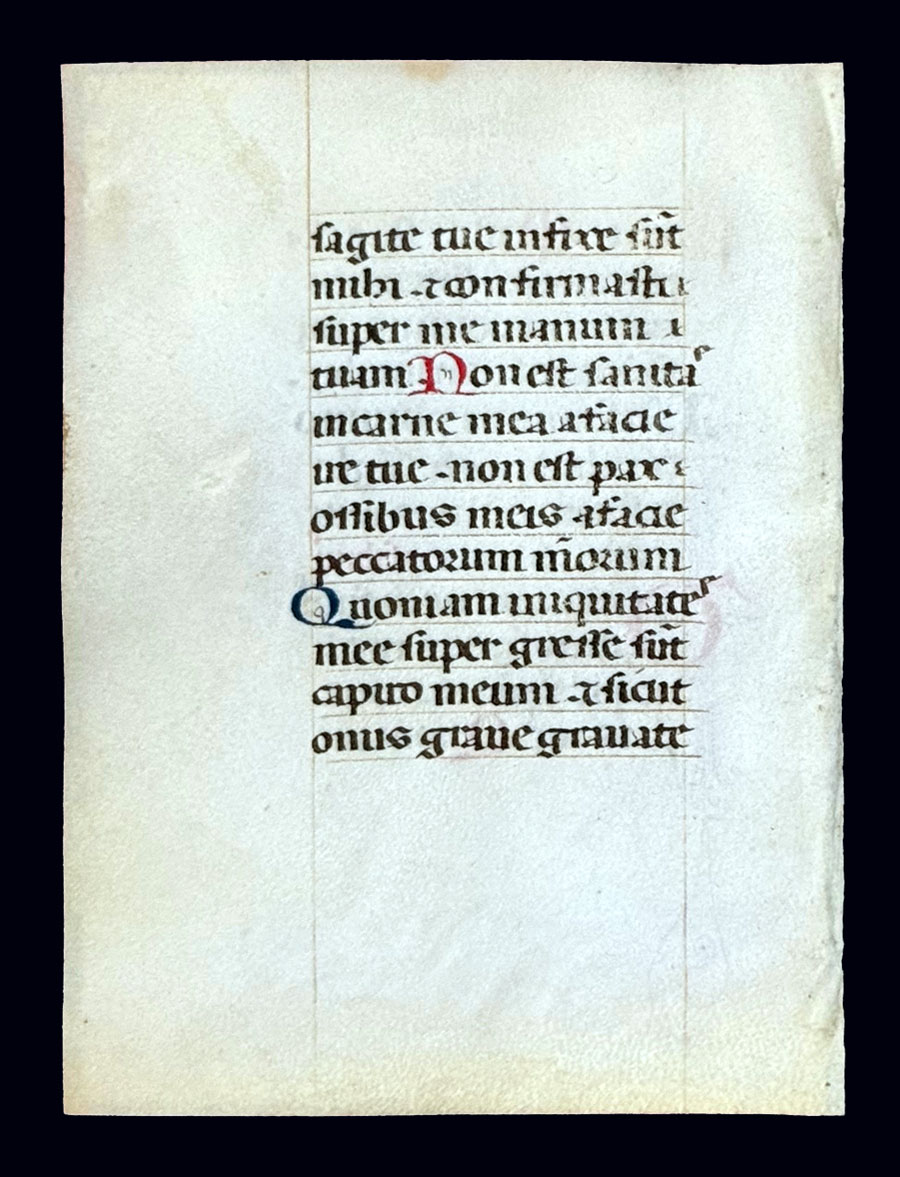 sagite tue infixe su̅t
mihi ⁊ confirmasti
super me manum
tuam Non est sanitas
in carne mea a facie
ire tue non est pax
ossibus meis a facie
peccatorum m̅orum
Quoniam iniquitates
mee super gresse su̅t
caput meum ⁊ sicut
onus graue grauate